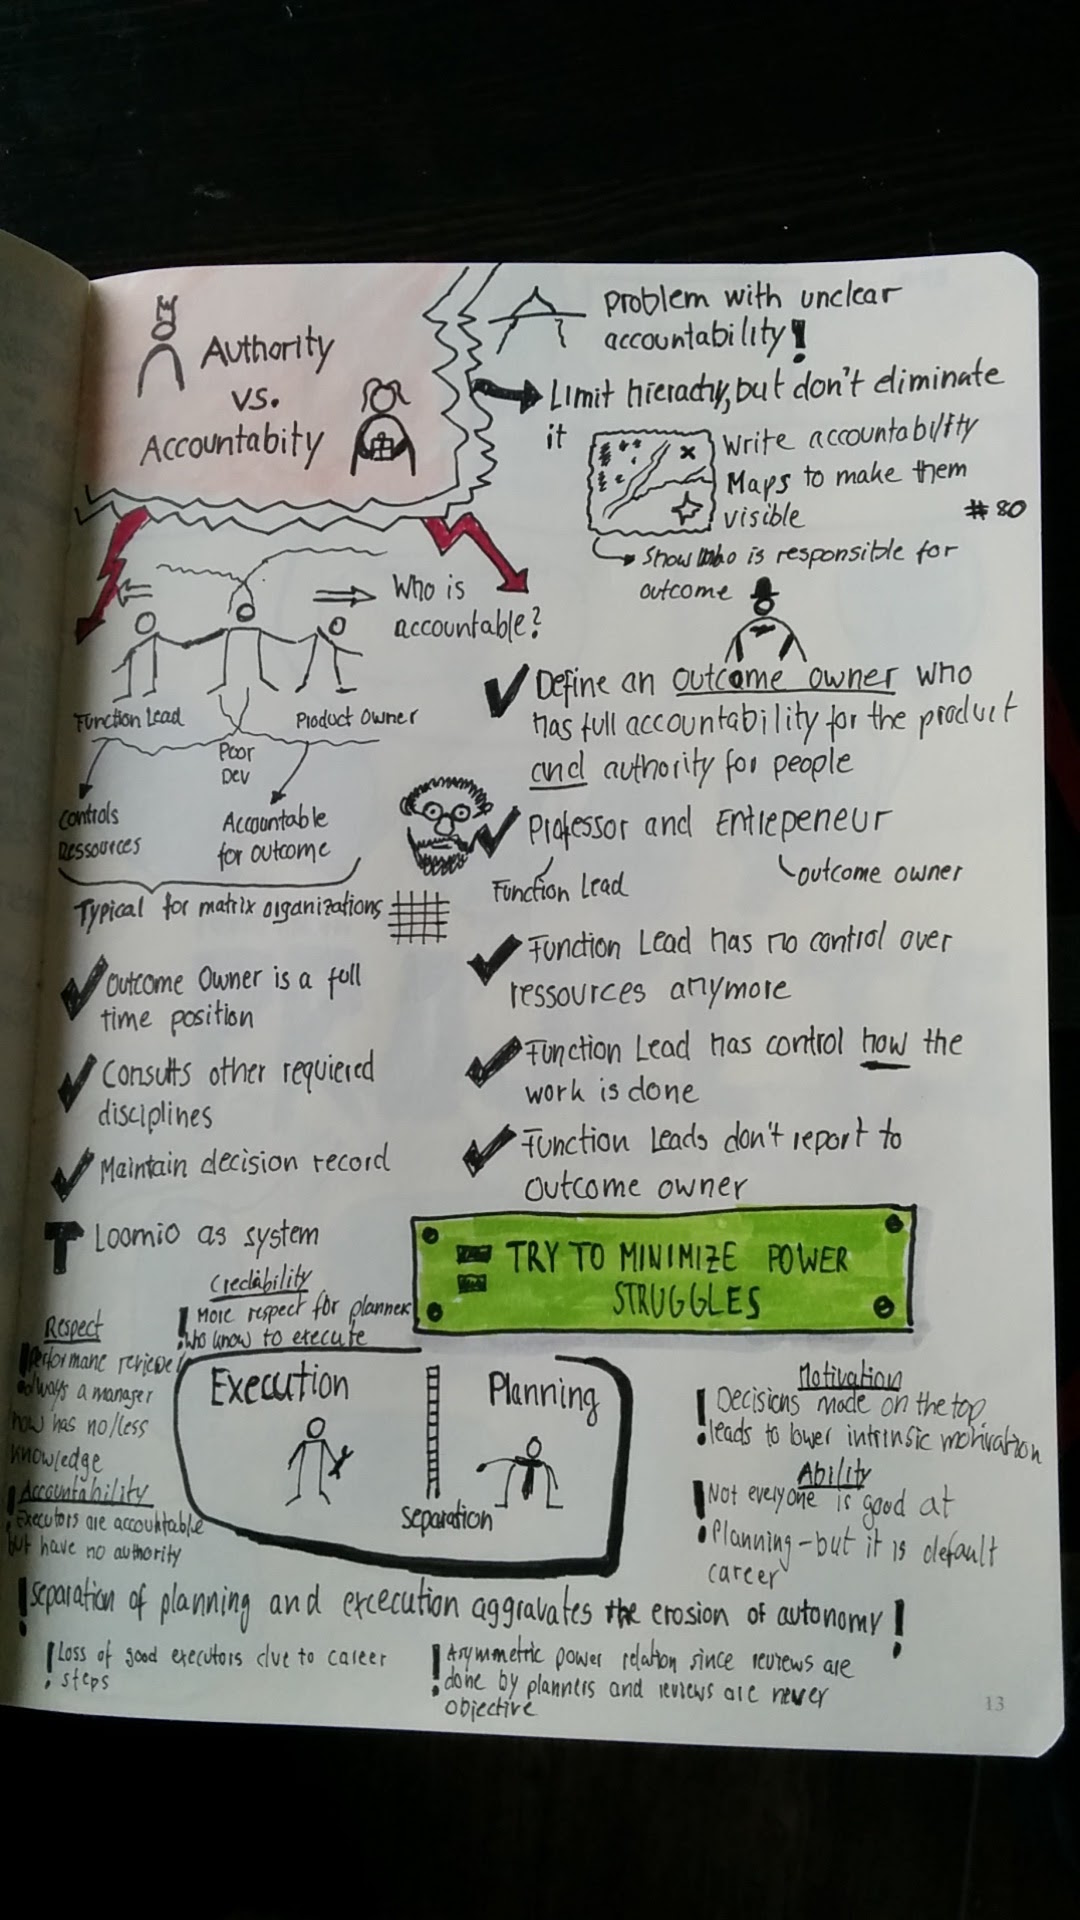 Authority
vs.
Accountabity
Problem with unclear
accountability!
Limit hierachy, but don't eliminate
it
Write accountability
Maps to make them
visible
#80
Show who is responsible for
outcome
Who is
accountable?
Function Lead
Product Owner
Poor
Dev
Controls
Ressources
Accountable
for outcome
Typical for matrix organizations
Define an outcome owner who
has full accountability for the product
and authority for people
Professor and Entrepeneur
Function Lead
outcome owner
Function Lead has no control over
ressources anymore
Function Lead has control how the
work is done
Function Leads don't report to
outcome owner
Outcome Owner is a full
time position
Consults other requiered
disciplines
Maintain decision record
Loomio as system
= TRY TO MINIMIZE POWER
STRUGGLES
Credability
! More respect for planners
who know to execute
Respect
! Performane reviewe
always a manager
how has no/less
knowledge
Accountability
! Executors are accountable
but have no authority
Execution
Planning
Separation
Motivation
! Decisions made on the top
leads to lower intrinsic motivation
Ability
! Not everyone is good at
Planning - but it is default
career
! Separation of planning and excecution aggravates the erosion of autonomy!
! Loss of good executors due to career
steps
! Asymmetric power relation since reviews are
done by planners and reviews are never
objective
13